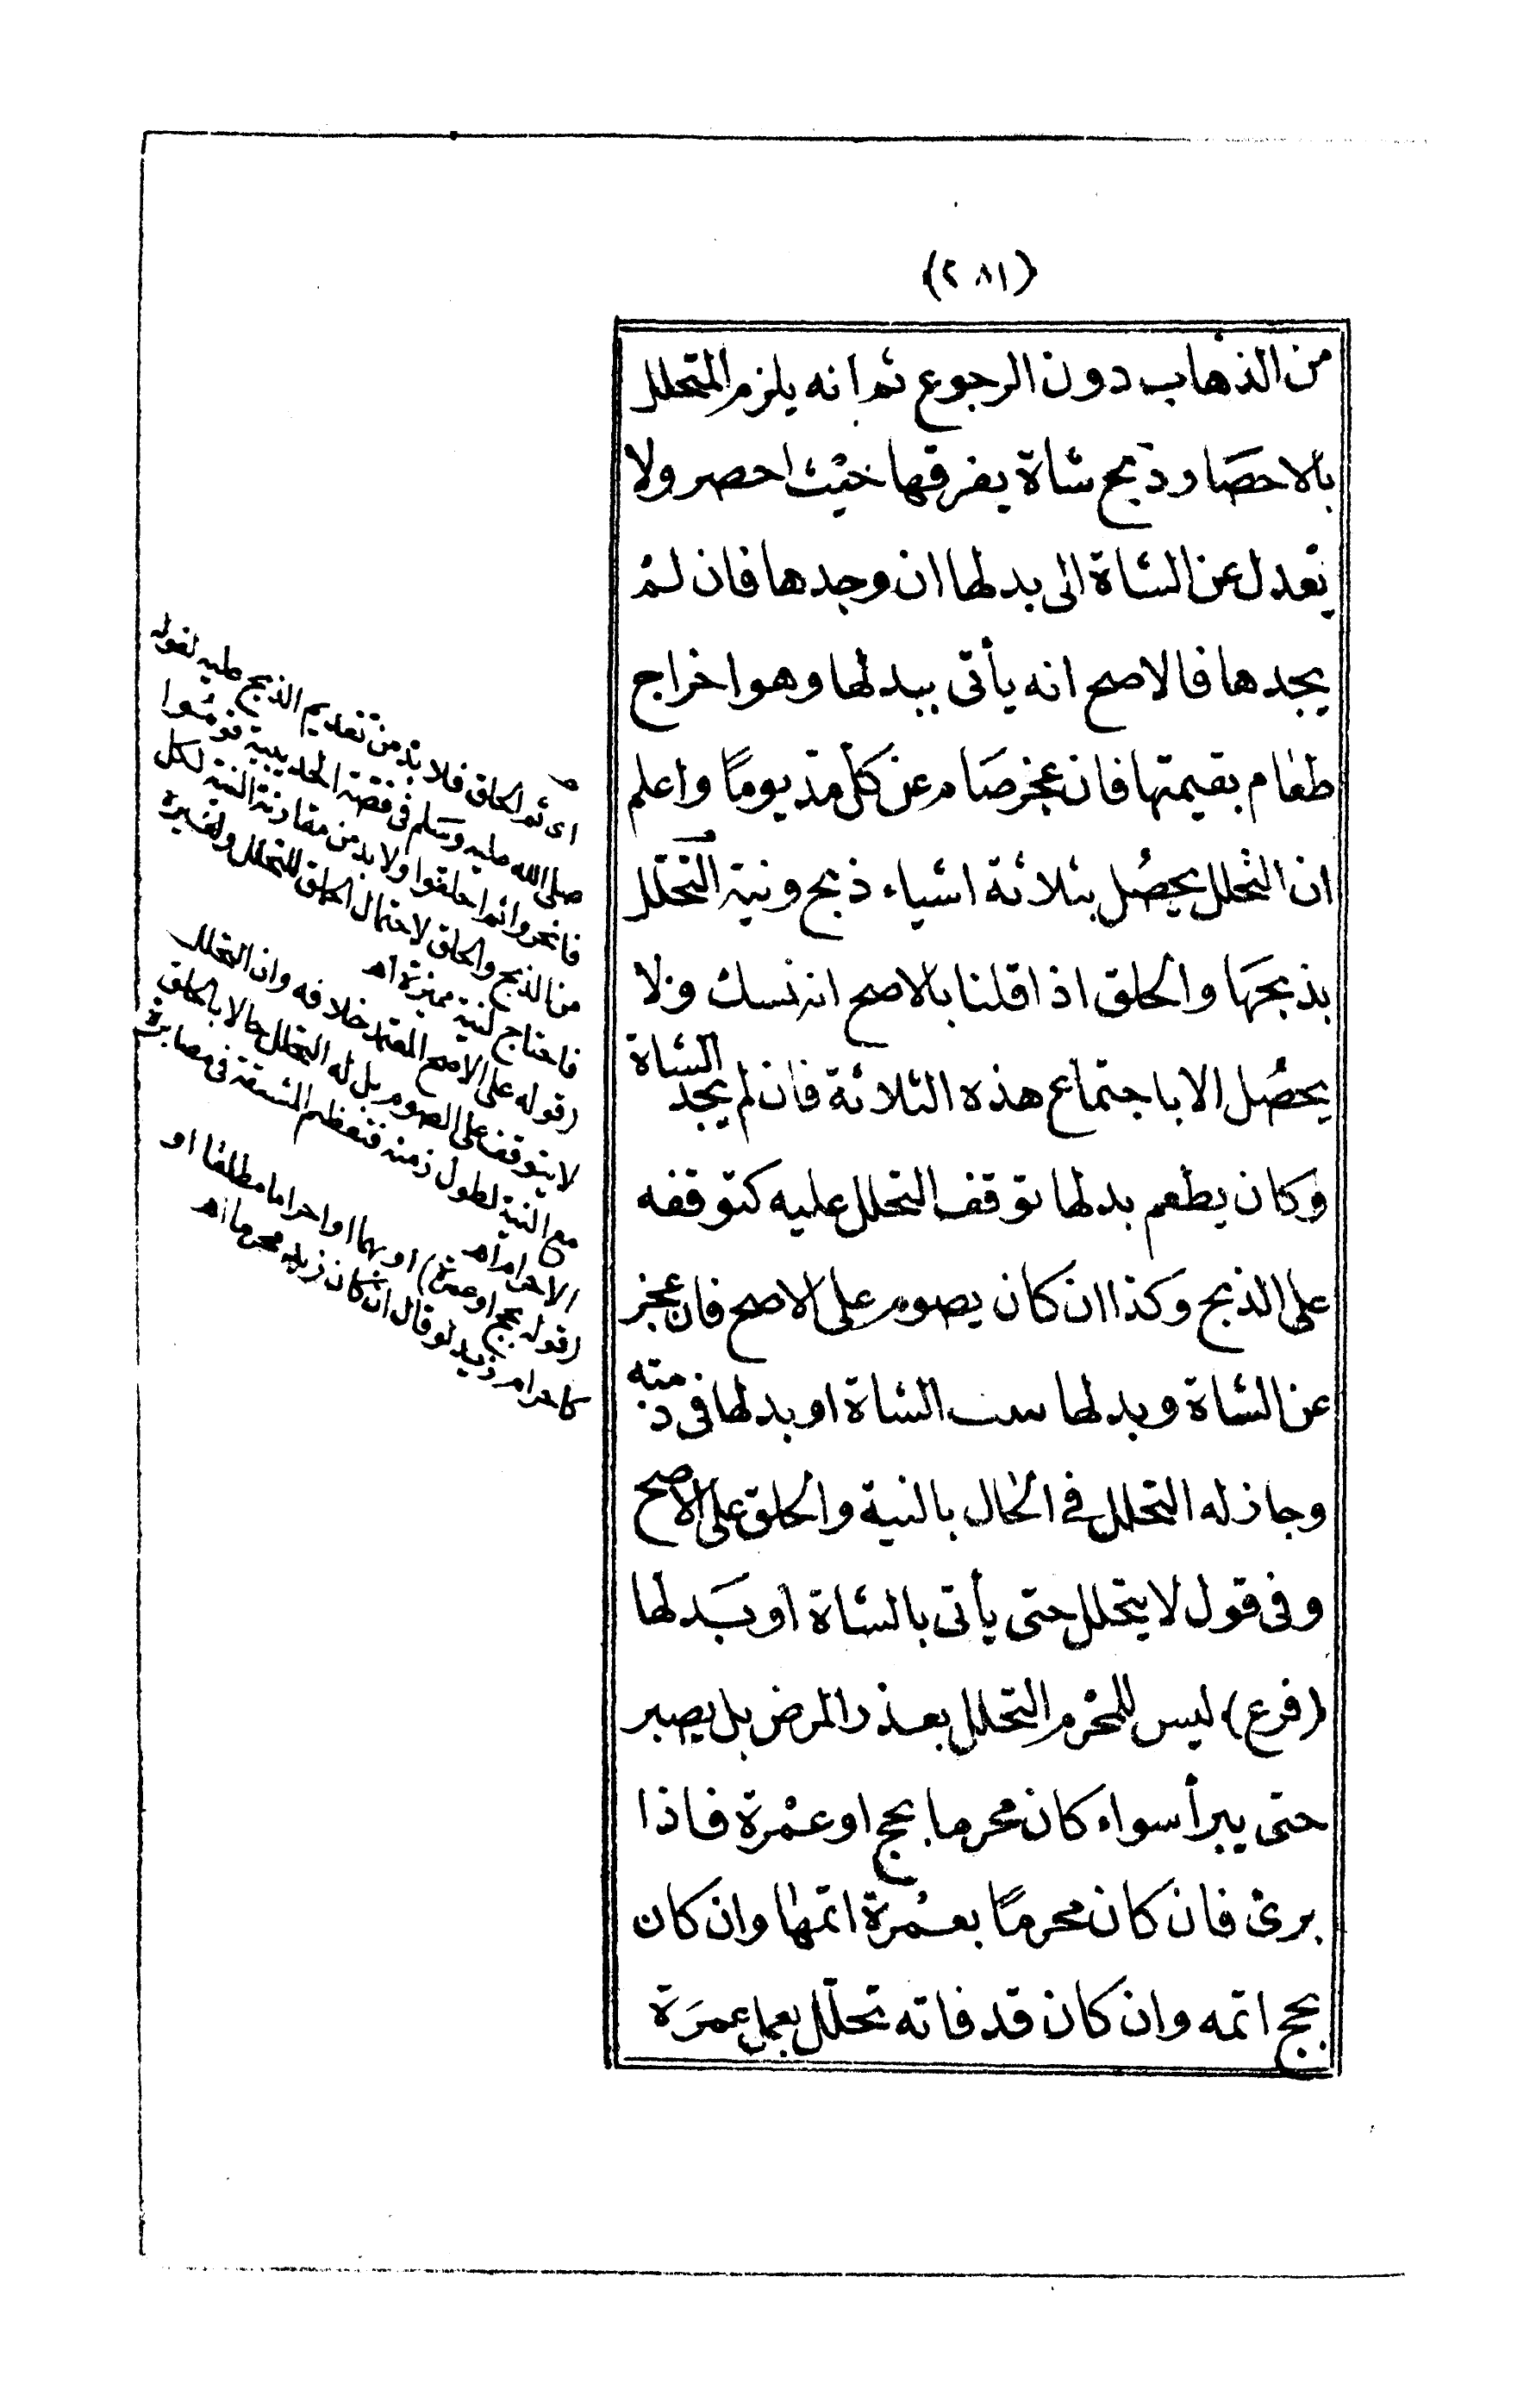 (٢٨١)
من الذهاب دون الرجوع ثم انه يلزم المتحلل
بالاحصار ذبح شاة يفرقها حيث احصر ولا
يعدل عن الشاة الى بدلها ان وجدها فان لم
يجدها فالاصح انه يأتى ببدلها وهو اخراج
طعام بقيمتها فان عجز صام عن كل مد يوماً واعلم
ان التحلل يحصل بثلاثة اشياء ذبح ونية التحلل
بذبحها والحلق اذا قلنا بالاصح انه نسك ولا
يحصل الا باجتماع هذه الثلاثة فان لم يجد الشاة
وكان يطعم بدلها توقف التحلل عليه كتوقفه
على الذبح وكذا ان كان يصوم على الاصح فان عجز
عن الشاة وبدلها ثبت الشاة او بدلها فى ذمته
وجاز له التحلل في الحال بالنية والحلق على الاصح
وفى قول لا يتحلل حتى يأتى بالشاة او بَدلها
(فرع) ليس للمحرم التحلل بعذر المرض بل يصبر
حتى يبرأ سواء كان محرما بحج او عمْرة فاذا
برئ فان كان محرماً بعمُرة اتمها وان كان
بحج اتمه وان كان قد فاته تحلّل بعمل عمرَة
اى ثم الحلق فلا بد من تقديم الذبح عليه لقوله
صلى الله عليه وسلم فى قصة الحديبية قوموا
فانحروا ثم احلقوا ولا بد من مقارنة النية لكل
من الذبح والحلق لاحتمال الحلق للتحلل ولغيره
فاحتاج لنية مميزة اهـ
(قوله على الاصح) المعتمد خلافه وان التحلل
لا يتوقف على الصوم بل له التحلل حالا بالحلق
مع النية لطول زمنه فتعظم المشقة فى مصابرة
الاحرام اهـ
(قوله بحج او عمرة) او بهما او احراما مطلقا او
كاحرام زيد لو قال ان كان زيد محرما اهـ